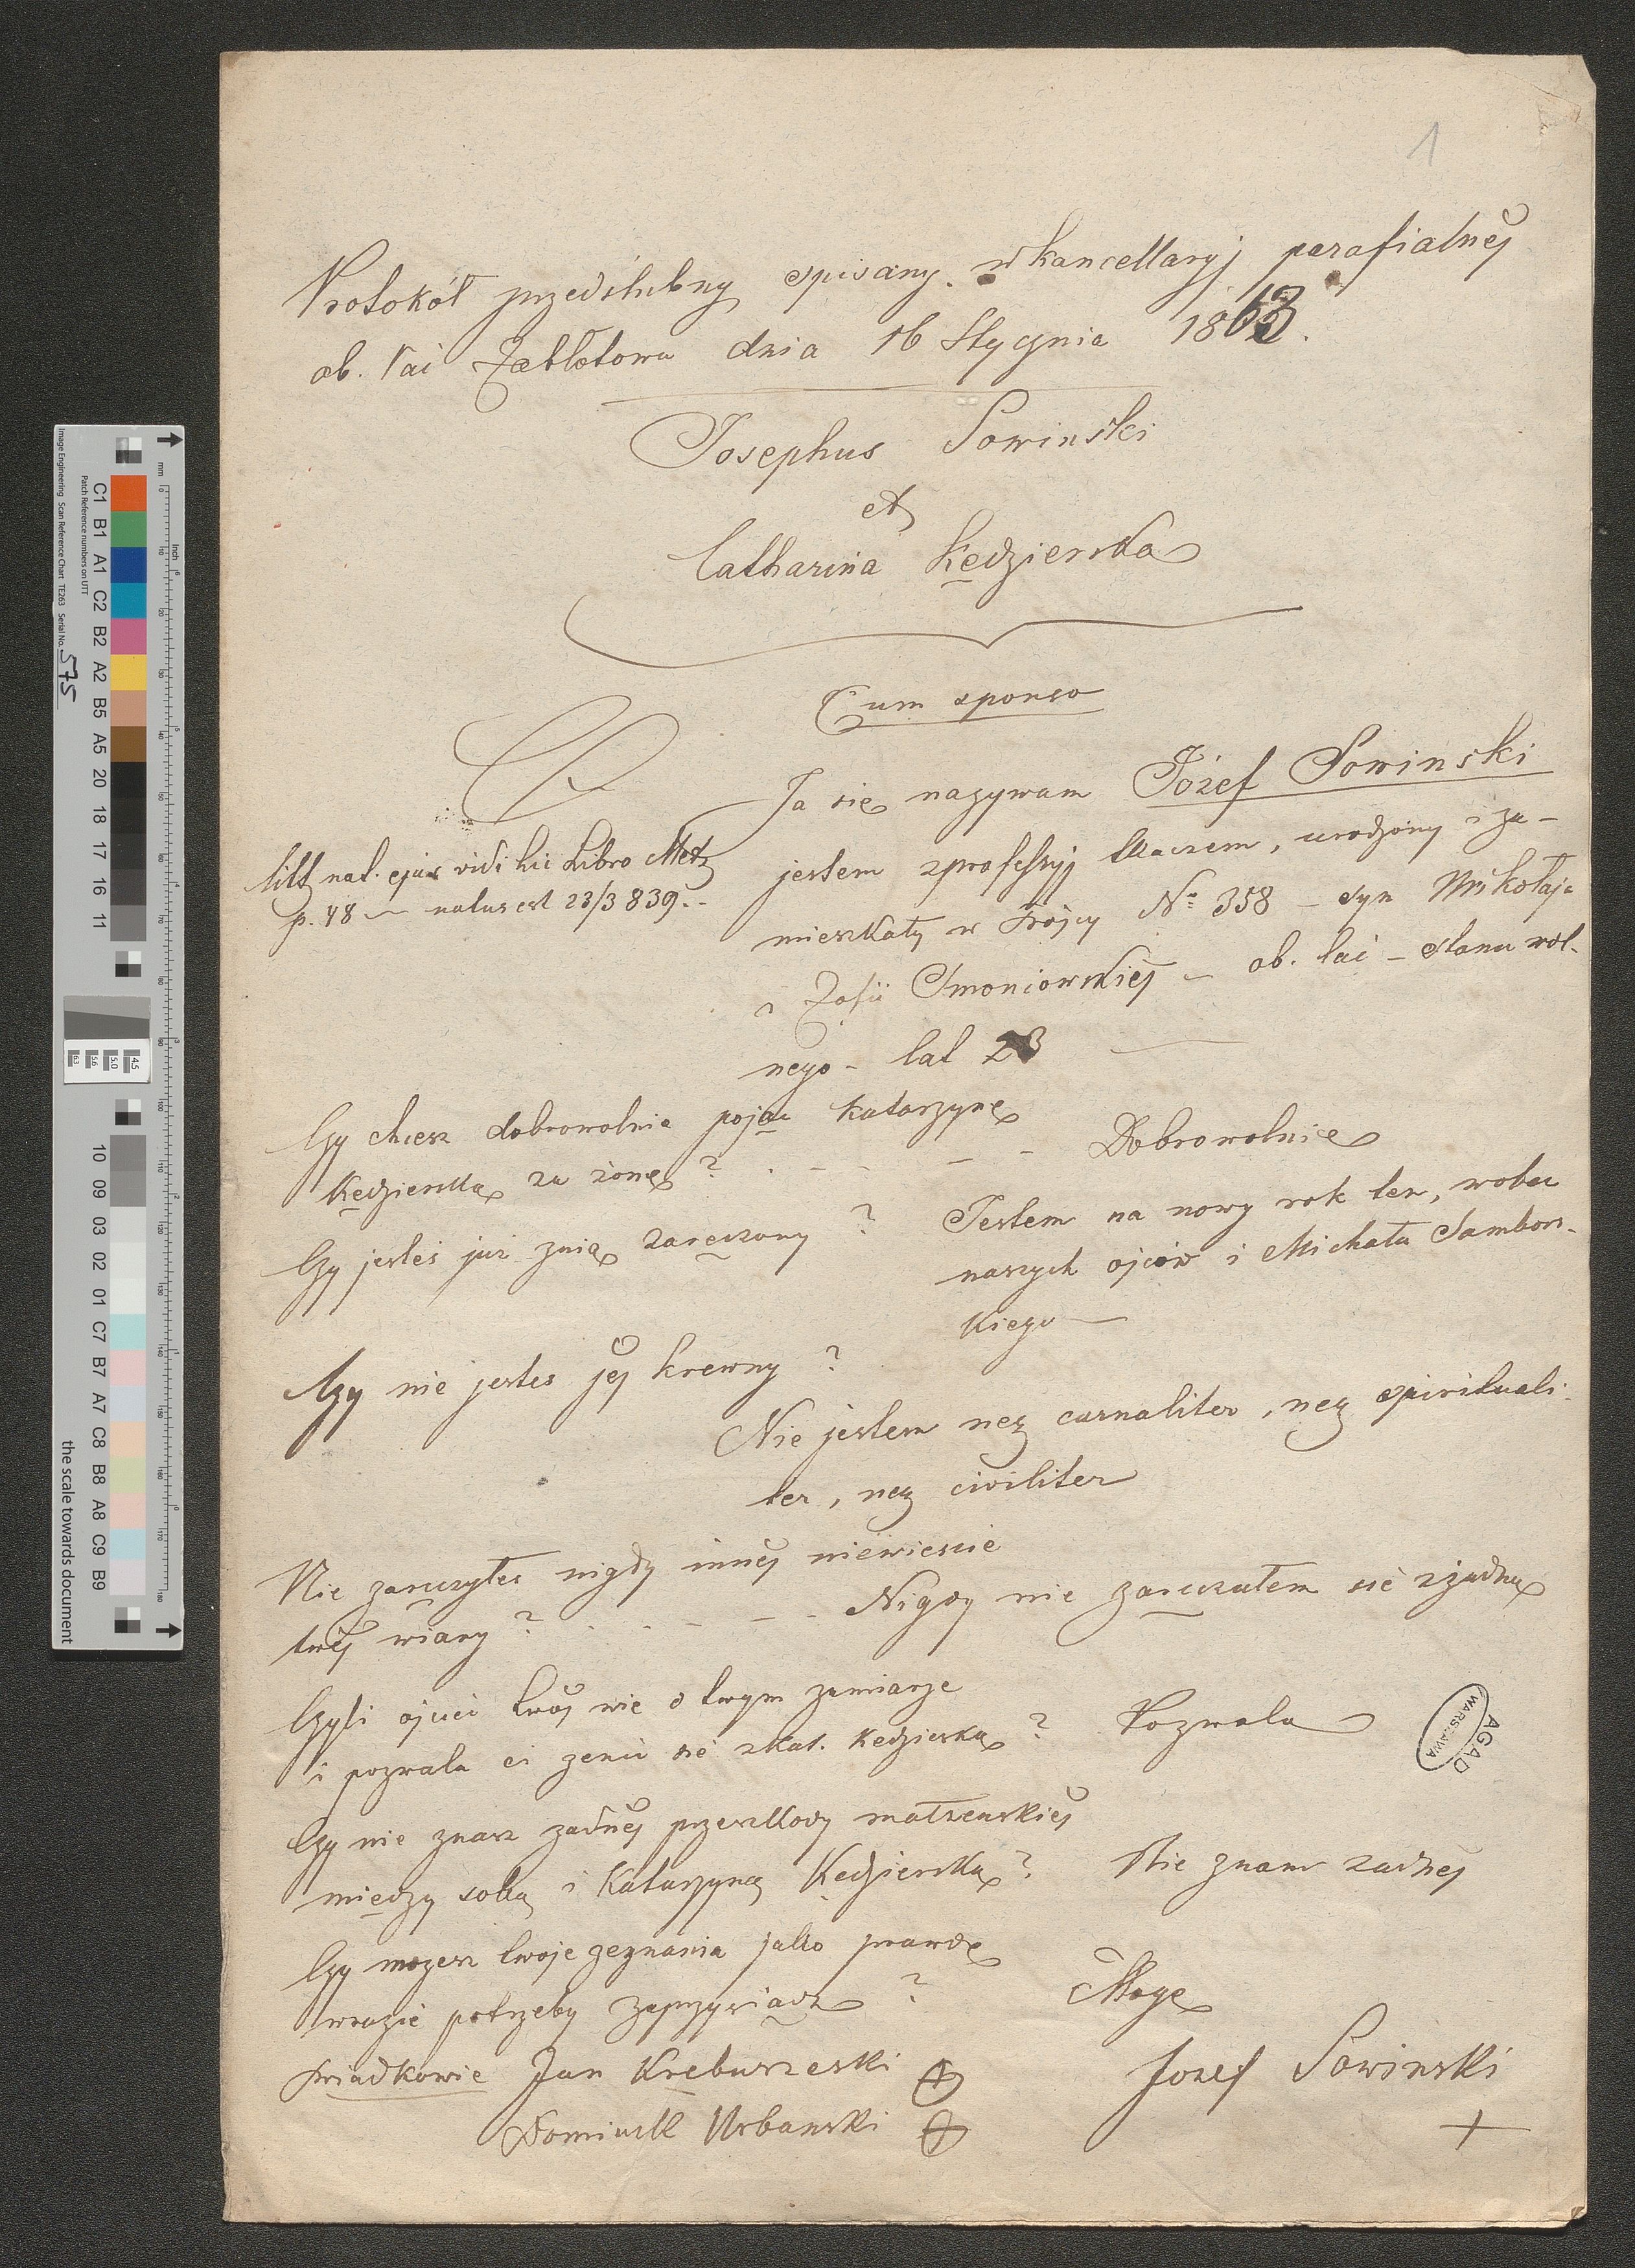 1
Protokół przedślubny spisany w kancellaryj parafialnéj
ob. łać Zabłotowa dnia 16 Stycznia 1863.
Josephus Sowinski
et
Catharina Kędzierska
Cum sponso
Ja się nazywam Józef Sowinski
jestem zprofessyj tkaczem, urodzony i za-
mieszkały w Trójcy No 358 – syn Mikołaja
i Zofii Smoniowskiéj – ob. łać – stanu wol-
nego – lat 23
Litt nat. ejus vidi hic Libro Metr
p. 48 — natus est 23/3 839.
Czy chcesz dobrowolnie pojąć Katarzynę
Kędzierską za żonę? Dobrowolnie
Czy jesteś już znią zaręczony? Jestem na nowy rok ten, wobec
naszych ojców i Michała Sambors-
kiego —
Czy nie jestes jéj krewny?
Nie jestem neq carnaliter, neq spirituali-
ter, neq civiliter
Nie zaręczyłeś nigdy innéj niewiescie
twéj wiary? Nigdy nie zaręczałem się zżadną
Czyli ojciec twój wie o twym zamiarze
i pozwala ci żenić się zKat. Kędzierską? Pozwala
Czy nie znasz żadnéj przeszkody małżenskiéj
między sobą i Katarzyną Kędzierską? Nie znam żadnéj
Czy mozesz twoje zeznania jako prawdę
wrazie potrzeby zaprzysiądz? Mogę
swiadkowie Jan Krebuszeski Jozef Sowinski
Dominik Urbanski +
AGAD
WARSZAWA
Image Engineering Scan Reference Chart TE263 Serial No. 575
Patch Reference numbers on UTT
C1 B1 A1 C2 B2 A2 B5 A5 20 18 17 16 11
10 09 03 02 01 C7 B7 A7 C8 B8 A8 C9 B9
the scale towards document